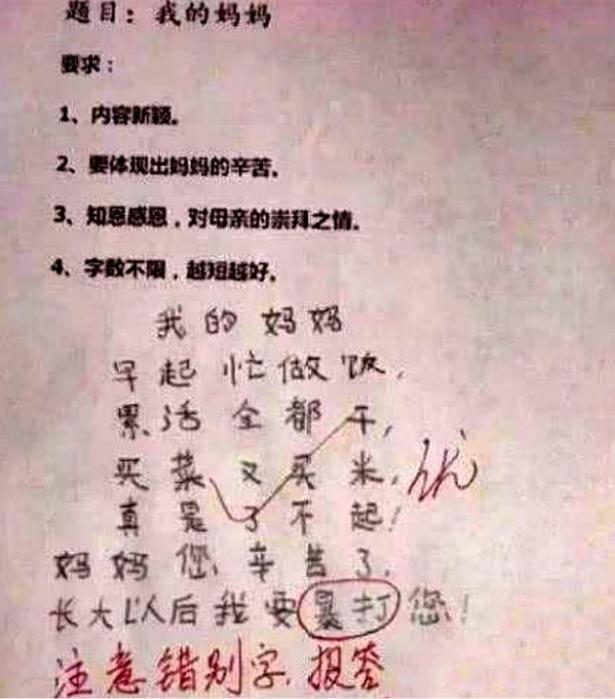 题目：我的妈妈
要求：
1、内容新颖。
2、要体现出妈妈的辛苦。
3、知恩感恩，对母亲的崇拜之情。
4、字数不限，越短越好。
我的妈妈
早起忙做饭，
累活全都干，
买菜又买米，
优
真是了不起！
妈妈您辛苦了，
长大以后我要暴打您！
注意错别字.报答